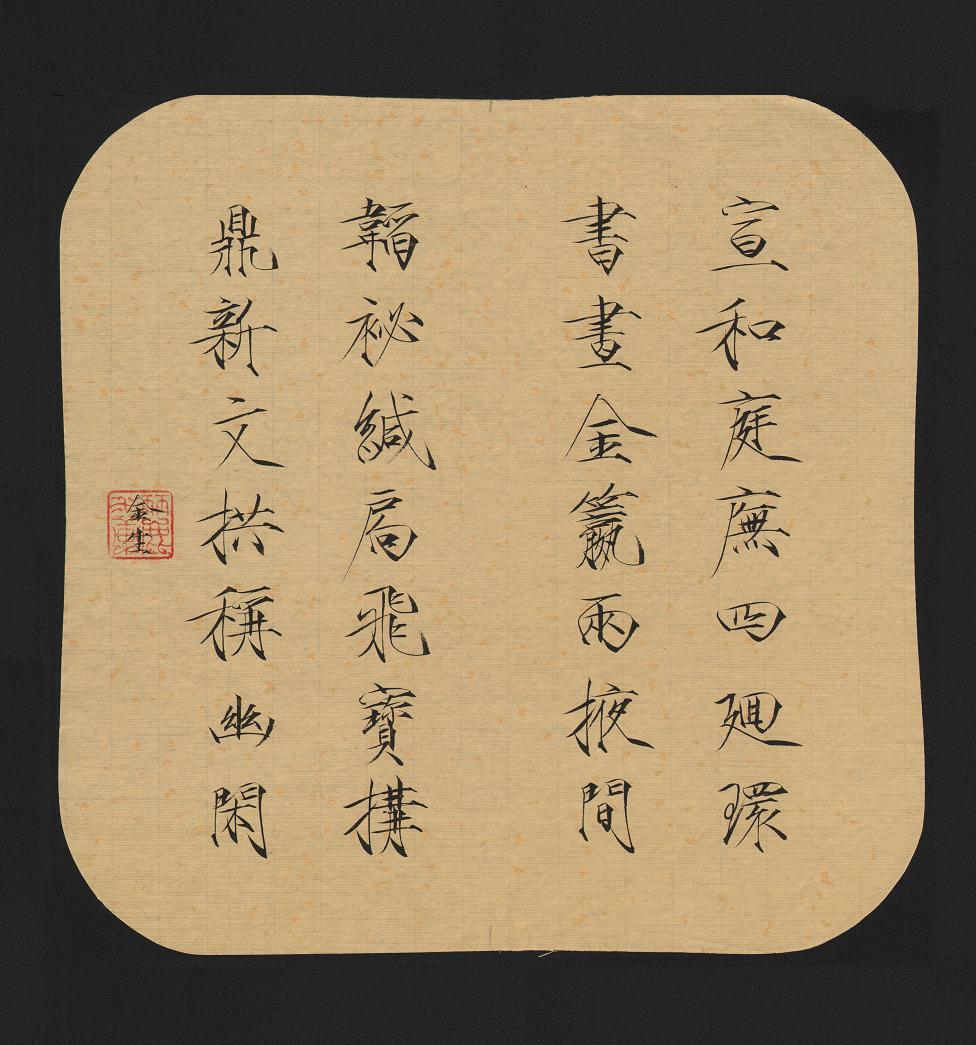 宣和庭廡四廻環
書畫金籯兩掖間
韜袐緘扃飛寶構
鼎新文拱稱幽閑
金生